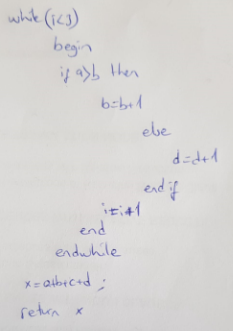 while(i<J)
begin
if a>b then
b=b+1
else
d=d+1
end if
i=i+1
end
endwhile
x=a+b+c+d ;
return x